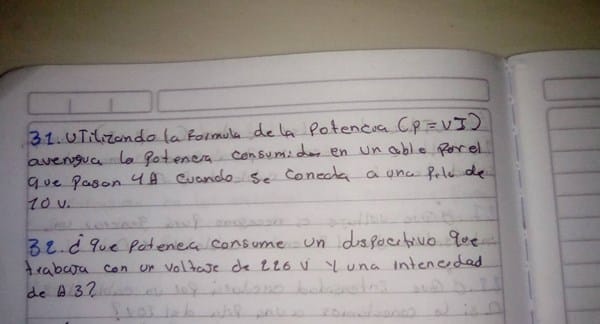 31. UTilizando la Formula de la Potencia (P=VI)
averigua la Potencia consumida en un cable Por el
que Pasan 4A cuando se conecta a una Pila de
10 v.
32. ¿ que Potencia consume un dispocitivo que
trabaja con un voltaje de 226 v y una intencidad
de A 3?